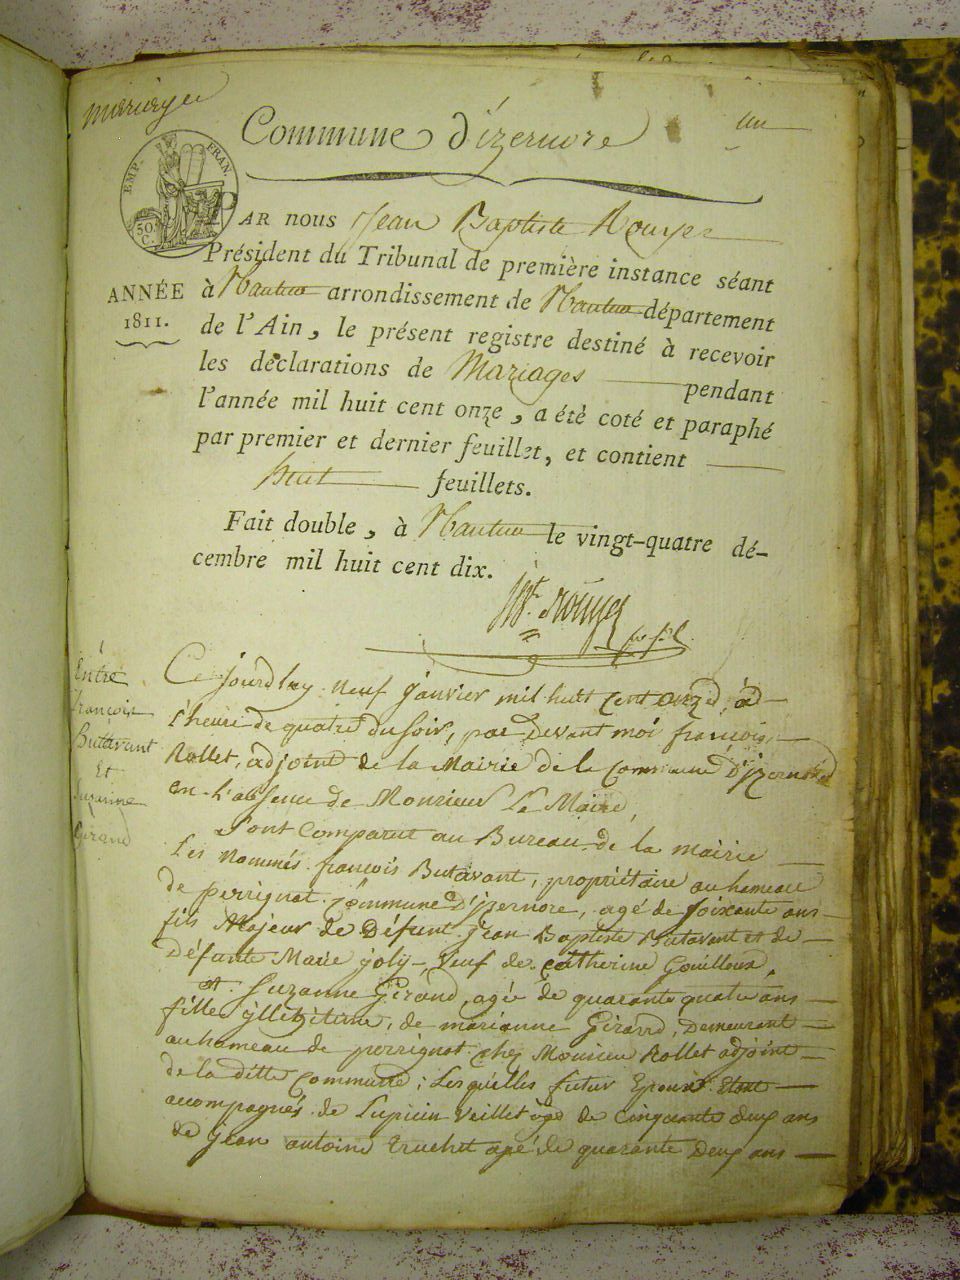 mariages
un
Commune d'izernore
EMP. FRAN.
30. C.
ANNÉE
1811.
PAR nous Jean Baptiste Rouyer
Président du Tribunal de première instance séant
à Nantua arrondissement de Nantua département
de l'Ain, le présent registre destiné à recevoir
les déclarations de Mariages pendant
l'année mil huit cent onze, a été coté et paraphé
par premier et dernier feuillet, et contient
huit feuillets.
Fait double, à Nantua le vingt-quatre dé-
cembre mil huit cent dix.
Rouyer
Entre
françois
Butavant
Et
Suzanne
Girand
Ce jourdhuy neuf janvier mil huit cent onze, à
l'heure de quatre du soir, par devant moi françois
Rollet, adjoint de la Mairie de la Commune D'jzernore
en l'absence de Monsieur Le Maire,
Sont comparut au Bureau de la mairie
Les Nommés françois Butavant, propriétaire au hameau
de perrignat Commune D'jzernore, agé de soixante ans
fils Majeur de Défunt Jean Baptiste Butavant et de
Défunte Marie joly, Veuf de Catherine Gouilloux,
et Suzanne Girand, agée de quarante quatre ans
fille jllegitime, de marianne Girard, Demeurant
au hameau de perrignat chez Monsieur Rollet adjoint
de la ditte Commune; Lesquelles futur Epoux Etant
accompagnés de Lupicin Veillet âgé de Cinquante deux ans
de Jean antoine Truchet agé de quarante Deux ans